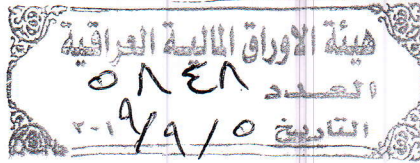 هيئة الاوراق المالية العراقية
العدد ٥٨٤٨
التاريخ ٢٠١٩/٩/٥